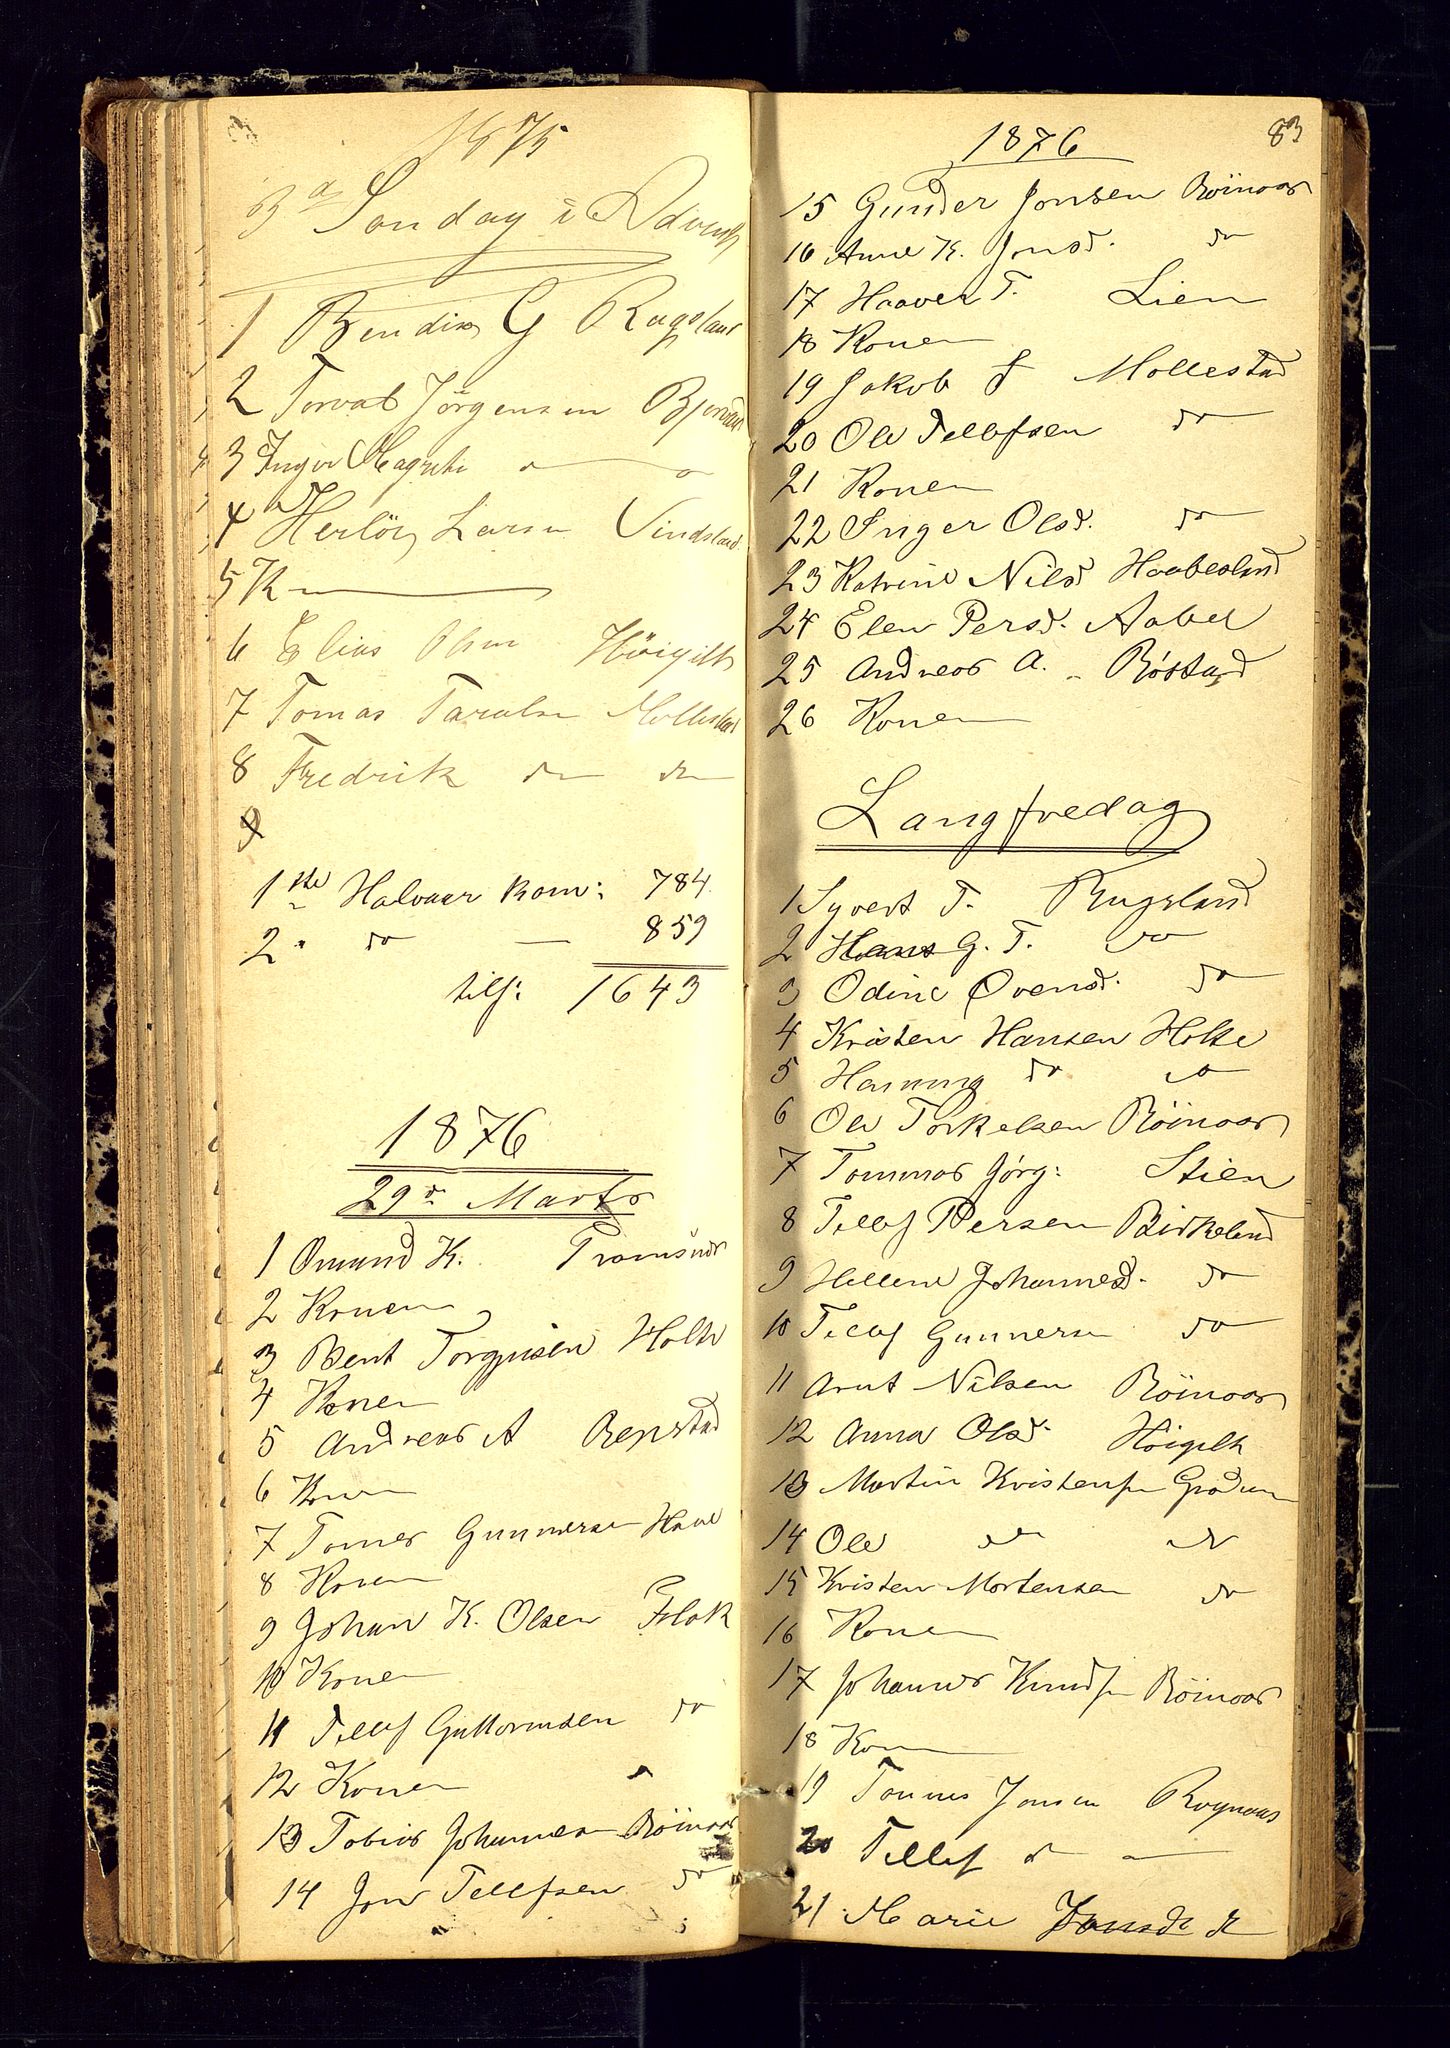 1875
3d Søndag i Advent
1 Bendix G Rugsland
2 Torval Jørgensen Bjorvand
3 Inger Magrete " "
4 Herlög Larsen Vindsland
5 K
6 Elias Ohm Høigilt
7 Tomas Taralsn Mollestad
8 Fredrik do do
9
1ste Halvaar Kom: 784
2. do — 859
tils: 1643
1876
29de Marts
1 Omund K. Tromsnes
2 Konen
3 Bent Torgrusen Holte
4 Konen
5 Andreas A Repstad
6 Konen
7 Tomes Gunnersen Haave
8 Konen
9 Johan K. Olsen Flak
10 Konen
11 Tellef Guttormsen do
12 Konen "
13 Tobias Johannesen Röinaas
14 Jon Tellefsen do
1876 83
15 Gunder Jonsen Röinaas
16 Anne K. Jonsd. do
17 Haaver T. Lien
18 Konen
19 Jakob J Mollestad
20 Ole Tellefsen do
21 Konen
22 Inger Olsd. do
23 Katrine Nilsd Haabesland
24 Elen Persd. Aabel
25 Andreas A. - Röstad
26 Konen
Langfredag
1 Syvert T. Rugsland
2 Hans G. T. do
3 Odine Øvensd. do
4 Kristen Hansen Holte
5 Hanning do do
6 Ole Torkelsen Röinaas
7 Tommas Jörg: Stien
8 Tellef Persen Birkeland
9 Hellene Johannesd. do
10 Tellef Gunnersen do
11 Arnt Nilsen Röinaas
12 Anna Olsd. Höigilt
13 Martin Kristensen Grødum
14 Ole do do
15 Kristen Mortensen do
16 Konen
17 Johannes Knudsen Röinaas
18 Konen
19 Tønnes Jonsen Røynaas
20 Tellef d —
21 Marie Jonsdt d